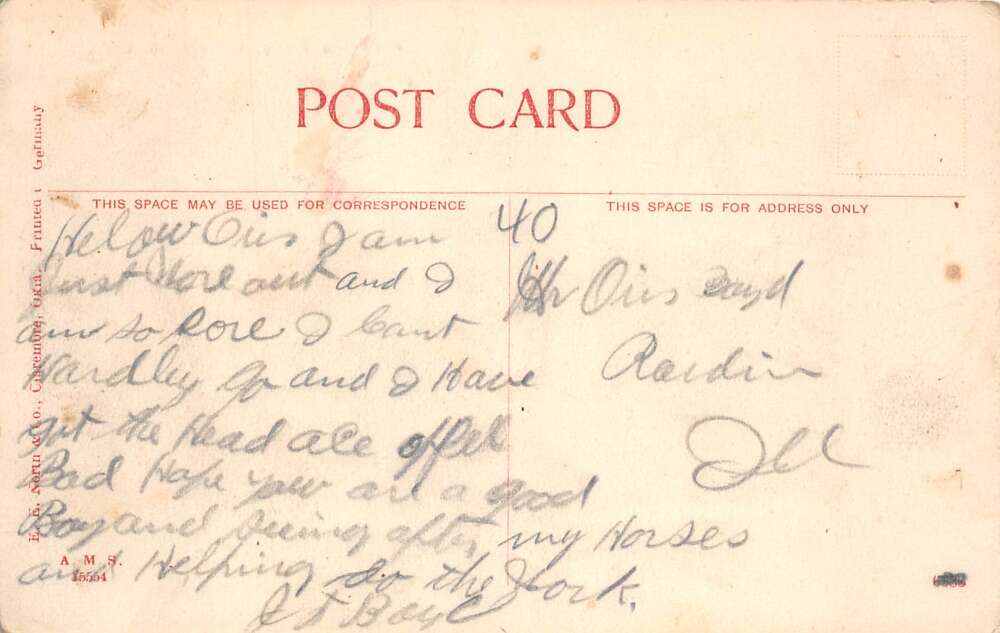 POST CARD
THIS SPACE MAY BE USED FOR CORRESPONDENCE
THIS SPACE IS FOR ADDRESS ONLY
Helow Oris I am
just Wore out and I
am so Sore I Cant
Hardley go and I Have
got the Head ace offel
Bad Hope you are a good
Boy and Seeing after my Horses
and Helping do the Work.
J T Boyd
40
Mr Oris Boyd
Rardin
Ill
E. E. North & Co., Claremore, Okla. Printed Germany
A M S.
15554